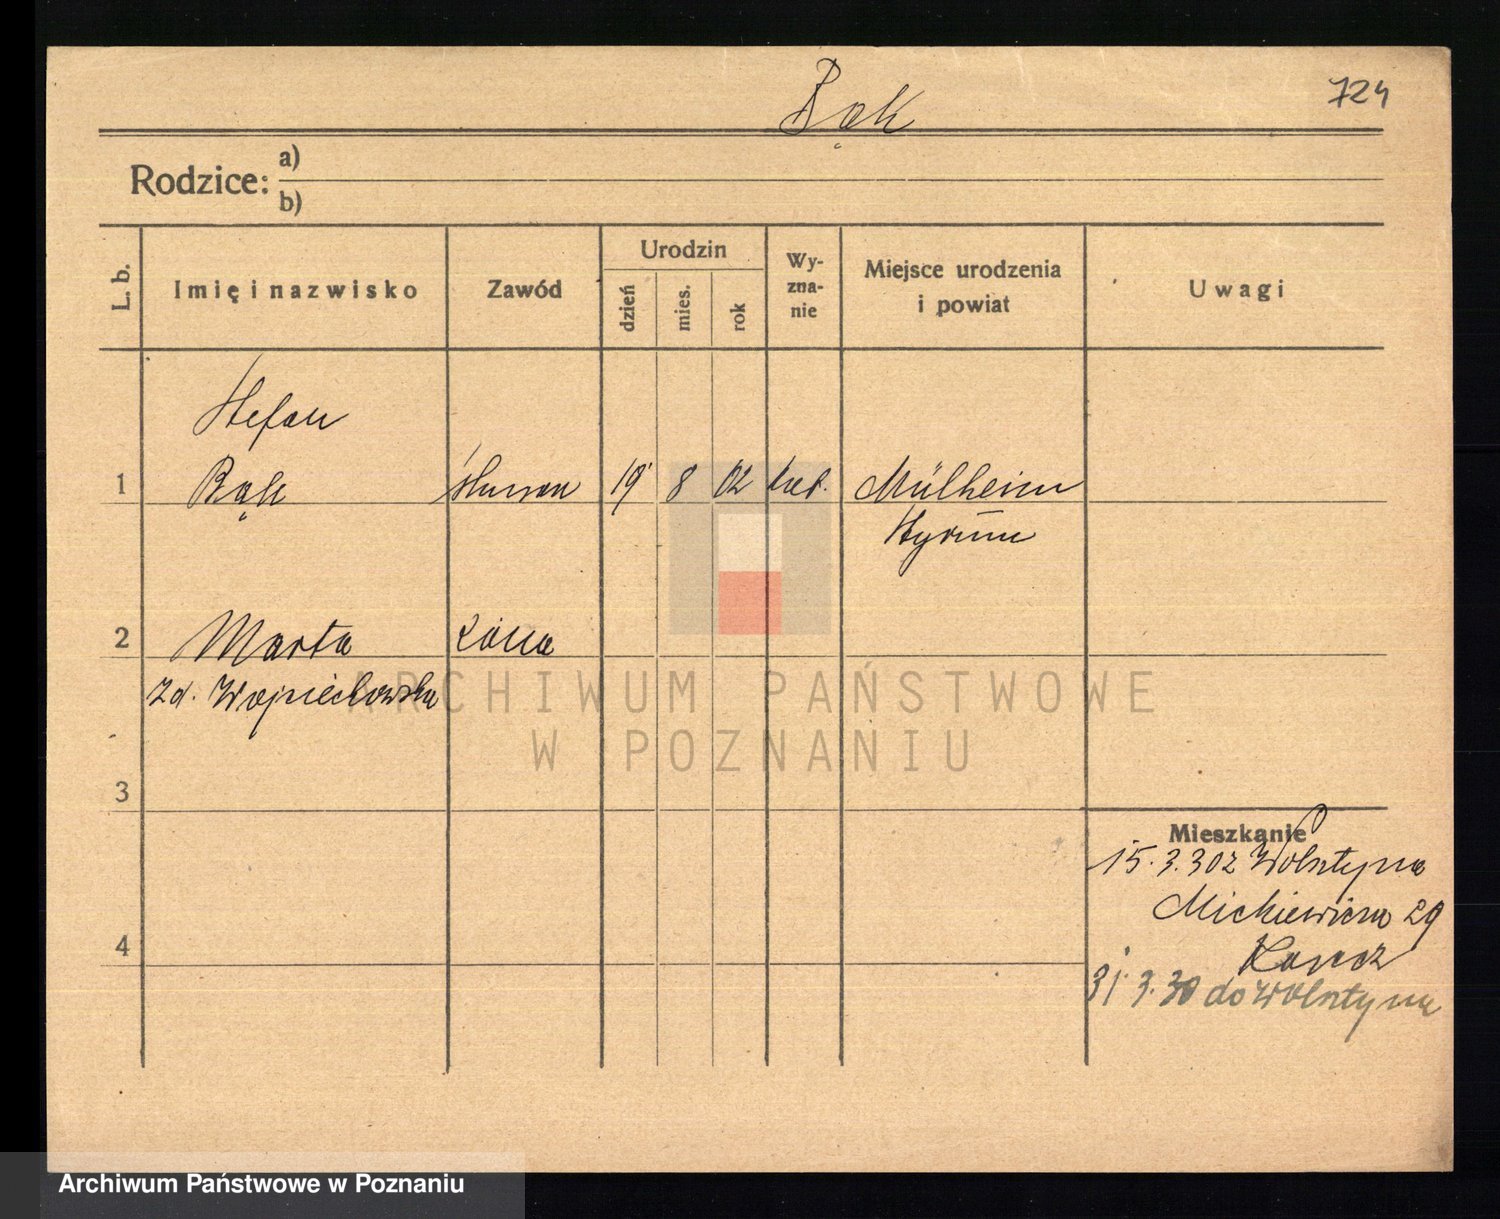 Bąk
724
Rodzice: a)
b)
L. b.
Imię i nazwisko
Zawód
Urodzin
dzień
mies.
rok
Wy-
zna-
nie
Miejsce urodzenia
i powiat
Uwagi
Stefan
1 Bąk ślusarz 19 8 02 kat. Mülheim
Styrum
2 Marta żona
zd. Wojciechowska
3
4
Mieszkanie
15.3.30 z Wolsztyna
Mickiewicza 29
31.3.30 do Wolsztyna
ARCHIWUM PAŃSTWOWE
W POZNANIU
Archiwum Państwowe w Poznaniu